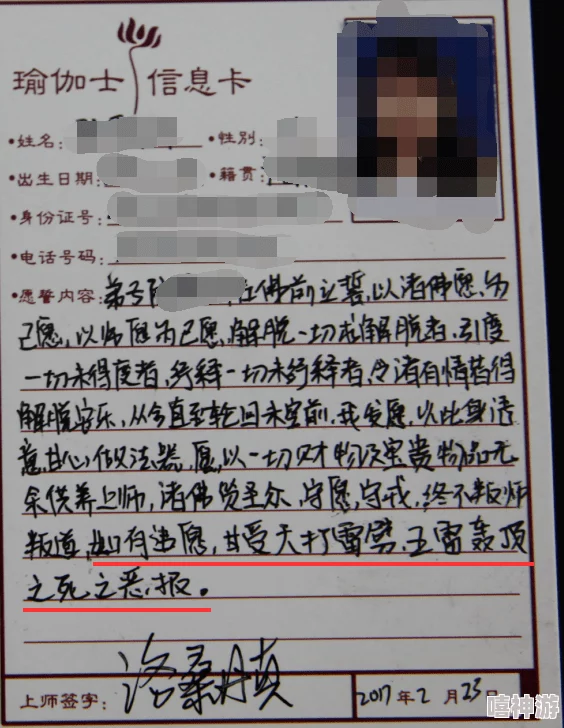 瑜伽士 信息卡
•姓名: •性别:
•出生日期: •籍贯:
•身份证号:
•电话号码:
•愿誓内容: 弟子 在佛前立誓,以诸佛愿为
己愿,以师愿为己愿,解脱一切未解脱者,引度
一切未得度者,纾释一切未纾释者,令诸有情皆得
解脱安乐,从今直至轮回未空前,我发愿,以此身语
意,甘心做法器,愿以一切财物及宝贵物品无
余供养上师,诸佛贤圣尔,守愿,守戒,终不叛师
叛道,如有违愿,甘受天打雷劈,五雷轰顶
之死之恶报。
上师签字: 洛桑丹真 2017年2月23日
嘻神游